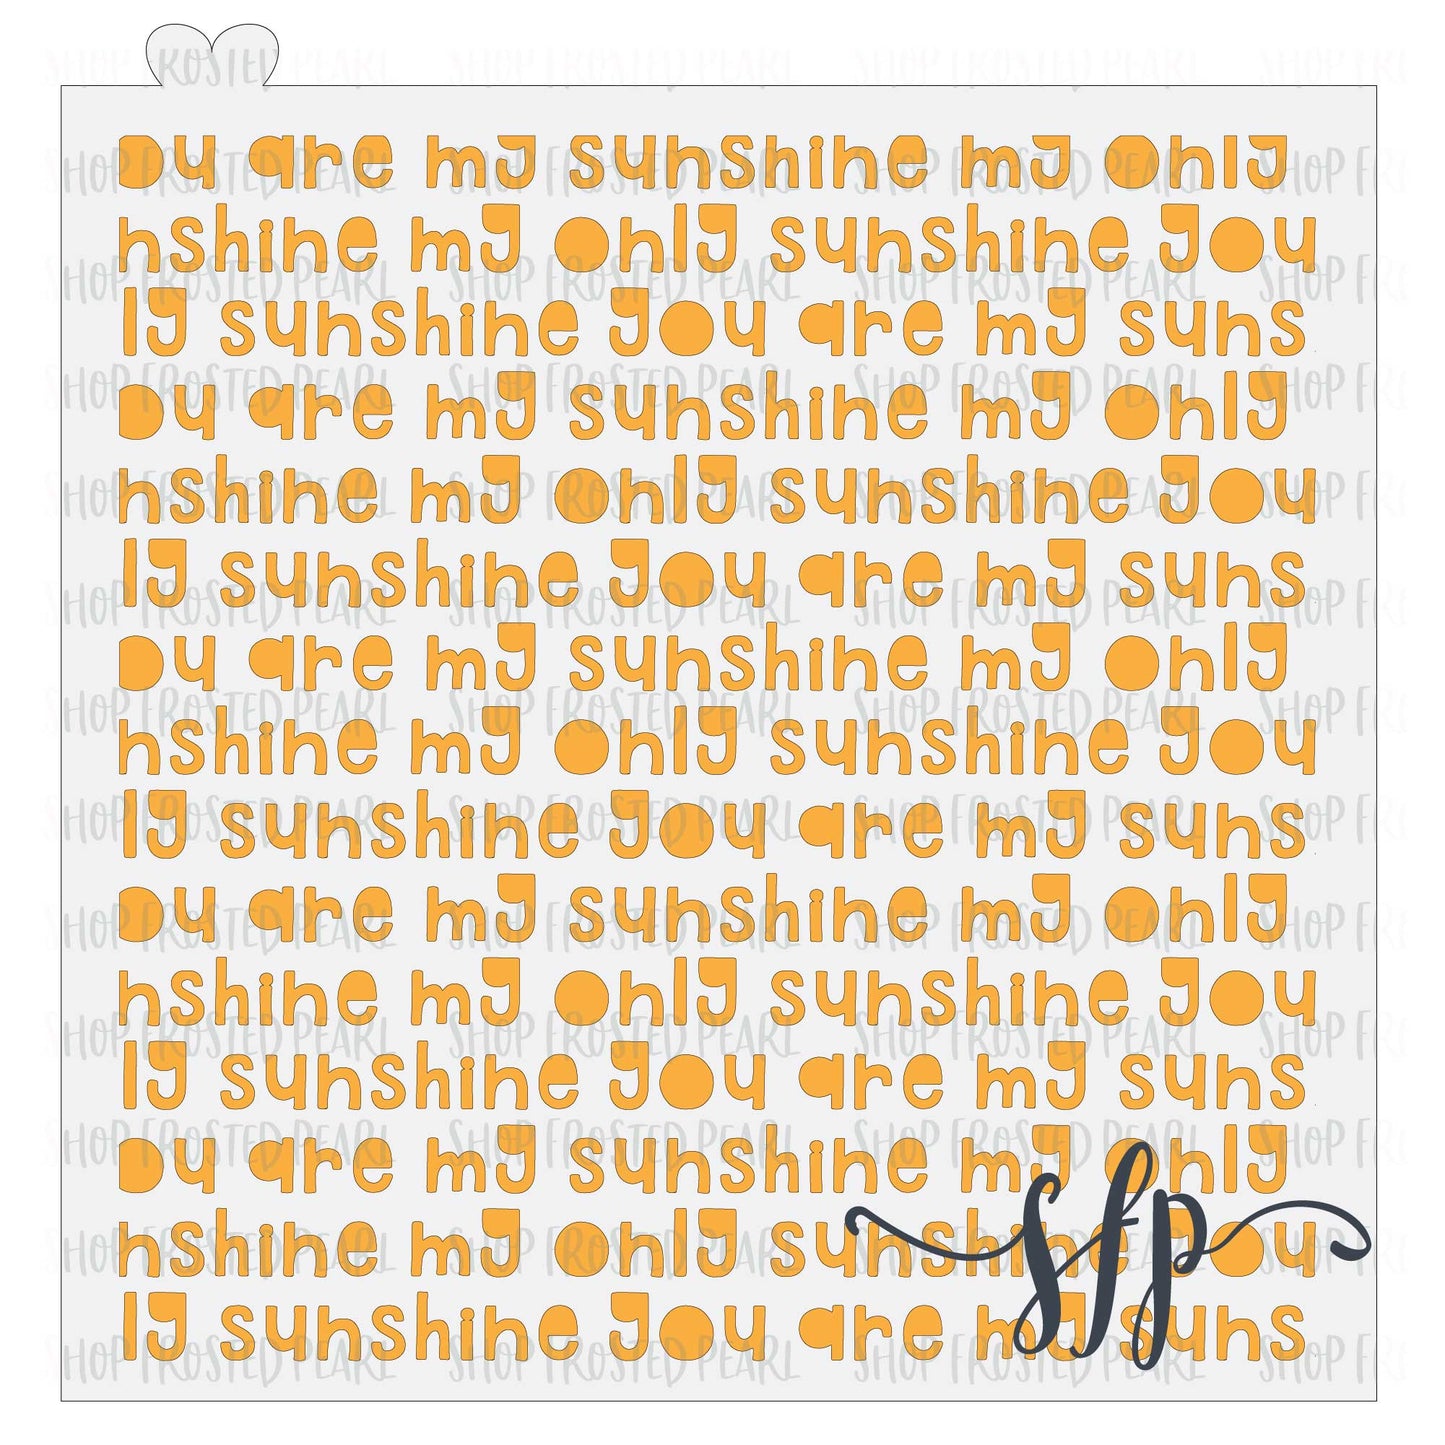 SHOP FROSTED PEARL
ou are my sunshine my only
nshine my only sunshine you
ly sunshine you are my suns
ou are my sunshine my only
nshine my only sunshine you
ly sunshine you are my suns
ou are my sunshine my only
nshine my only sunshine you
ly sunshine you are my suns
ou are my sunshine my only
nshine my only sunshine you
ly sunshine you are my suns
ou are my sunshine my only
nshine my only sunshine you
ly sunshine you are my suns
sfp